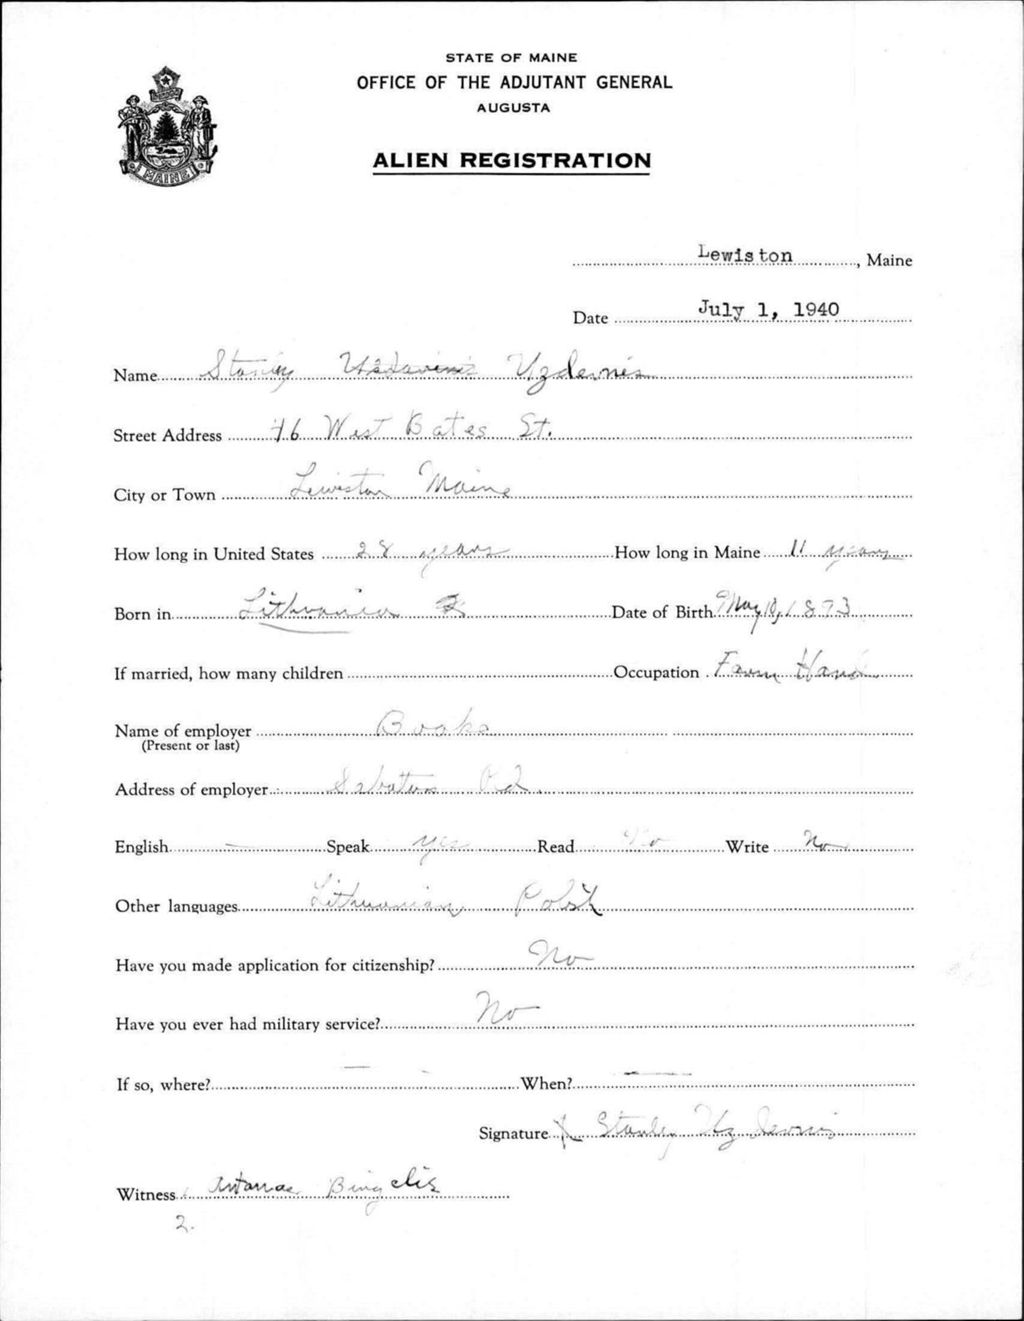 STATE OF MAINE
OFFICE OF THE ADJUTANT GENERAL
AUGUSTA
ALIEN REGISTRATION
MAINE
Lewiston, Maine
Date July 1, 1940
Name Stanley Uzdevnis
Street Address 76 West Bates St.
City or Town Lewiston Maine
How long in United States 28 years How long in Maine 11 years
Born in Lithuania Date of Birth May 10, 1873
If married, how many children Occupation Farm Hand
Name of employer
(Present or last)
Address of employer Sabatus Rd.
English — Speak yes Read No Write No
Other languages Lithuanian Polish
Have you made application for citizenship? No
Have you ever had military service? No
If so, where? — When? —
Signature X Stanley Uzdevnis
Witness Antanas Bingelis
2.